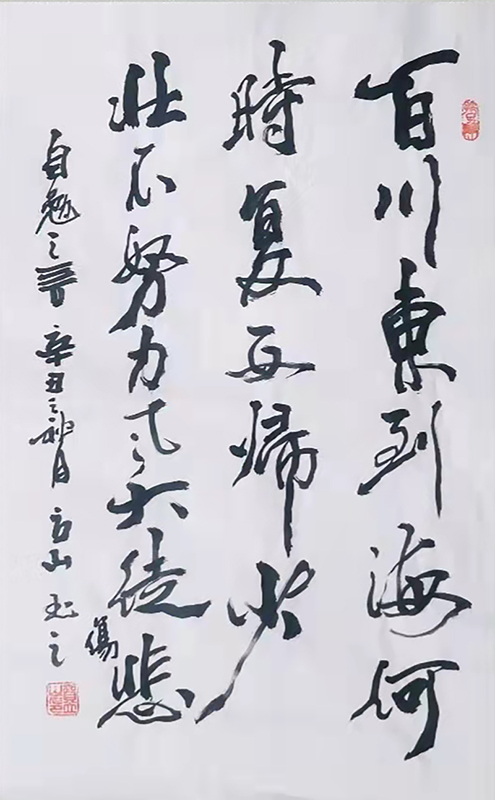 百川東到海何
時复西歸少
壯不努力老大徒傷悲
自勉之言 辛丑之秋月 方山 之